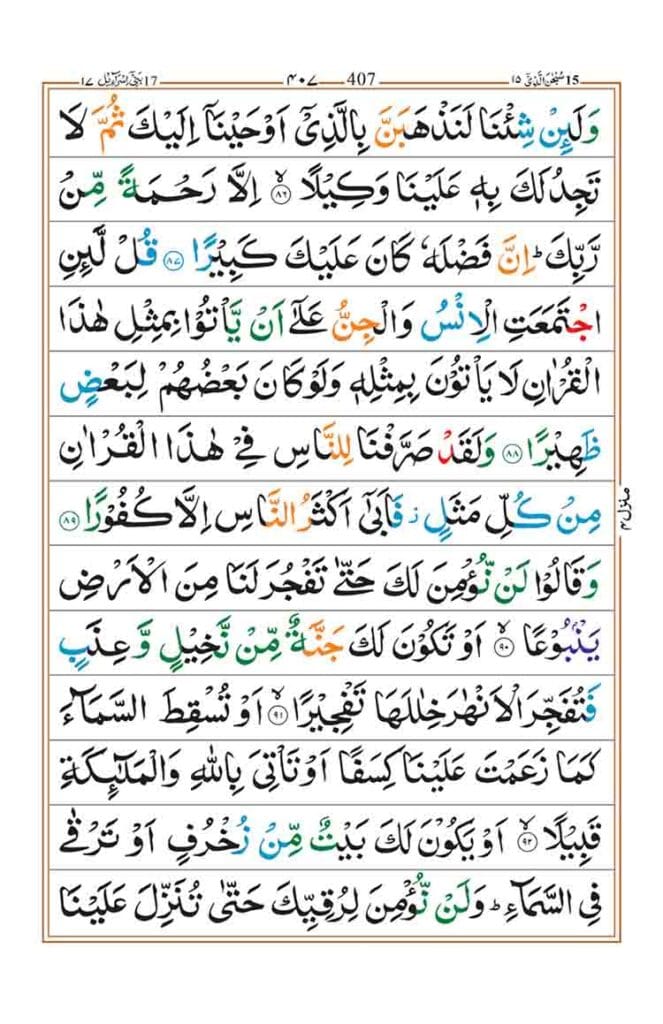 سُبْحٰنَ الَّذِیْۤ ١٥ 15 407 ٤٠٧ 17 بَنِیْۤ اِسْرَآءِیْل ١٧
وَلَئِنْ شِئْنَا لَنَذْهَبَنَّ بِالَّذِیْۤ اَوْحَیْنَاۤ اِلَیْكَ ثُمَّ لَا
تَجِدُ لَكَ بِهٖ عَلَیْنَا وَكِیْلًا ۙ‏﴿٨٦﴾ اِلَّا رَحْمَةً مِّنْ
رَّبِّكَ ؕ اِنَّ فَضْلَهٗ كَانَ عَلَیْكَ كَبِیْرًا ﴿٨٧﴾ قُلْ لَّئِنِ
اجْتَمَعَتِ الْاِنْسُ وَالْجِنُّ عَلٰۤی اَنْ یَّاْتُوْا بِمِثْلِ هٰذَا
الْقُرْاٰنِ لَا یَاْتُوْنَ بِمِثْلِهٖ وَلَوْ كَانَ بَعْضُهُمْ لِبَعْضٍ
ظَهِیْرًا ﴿٨٨﴾ وَلَقَدْ صَرَّفْنَا لِلنَّاسِ فِیْ هٰذَا الْقُرْاٰنِ
مِنْ كُلِّ مَثَلٍ ؗ فَاَبٰۤی اَكْثَرُ النَّاسِ اِلَّا كُفُوْرًا ﴿٨٩﴾
وَقَالُوْا لَنْ نُّؤْمِنَ لَكَ حَتّٰی تَفْجُرَ لَنَا مِنَ الْاَرْضِ
یَنْۢبُوْعًا ۙ﴿٩٠﴾ اَوْ تَكُوْنَ لَكَ جَنَّةٌ مِّنْ نَّخِیْلٍ وَّعِنَبٍ
فَتُفَجِّرَ الْاَنْهٰرَ خِلٰلَهَا تَفْجِیْرًا ۙ﴿٩١﴾ اَوْ تُسْقِطَ السَّمَآءَ
كَمَا زَعَمْتَ عَلَیْنَا كِسَفًا اَوْ تَاْتِیَ بِاللّٰهِ وَالْمَلٰٓئِكَةِ
قَبِیْلًا ۙ﴿٩٢﴾ اَوْ یَكُوْنَ لَكَ بَیْتٌ مِّنْ زُخْرُفٍ اَوْ تَرْقٰی
فِی السَّمَآءِ ؕ وَلَنْ نُّؤْمِنَ لِرُقِیِّكَ حَتّٰی تُنَزِّلَ عَلَیْنَا
منزل ٤